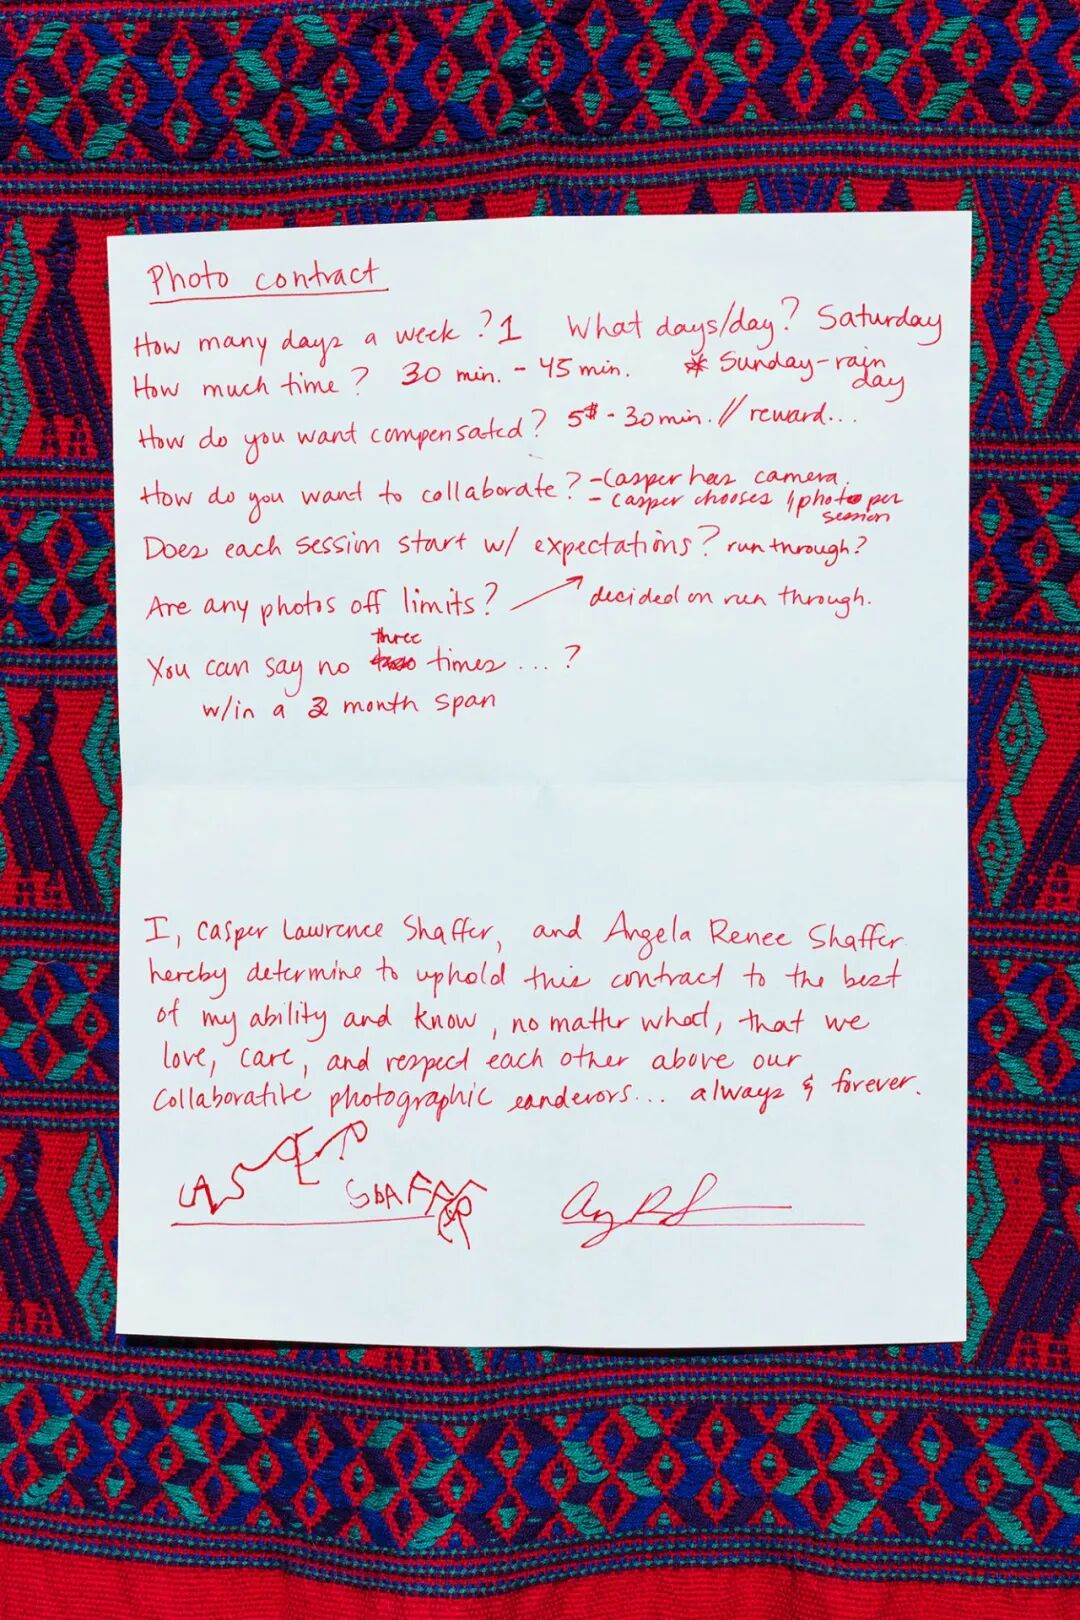 Photo contract
How many days a week? 1 What days/day? Saturday
How much time? 30 min. - 45 min. * Sunday-rain day
How do you want compensated? 5$ - 30 min. // reward...
How do you want to collaborate? - Casper has camera.
- Casper chooses 1 photo per session
Does each session start w/ expectations? run through?
Are any photos off limits? → decided on run through.
You can say no three times ... ?
w/in a 2 month span
I, Casper Lawrence Shaffer, and Angela Renee Shaffer
hereby determine to uphold this contract to the best
of my ability and know, no matter what, that we
love, care, and respect each other above our
collaborative photographic eandevors... always & forever.
CASPER SHAFFER